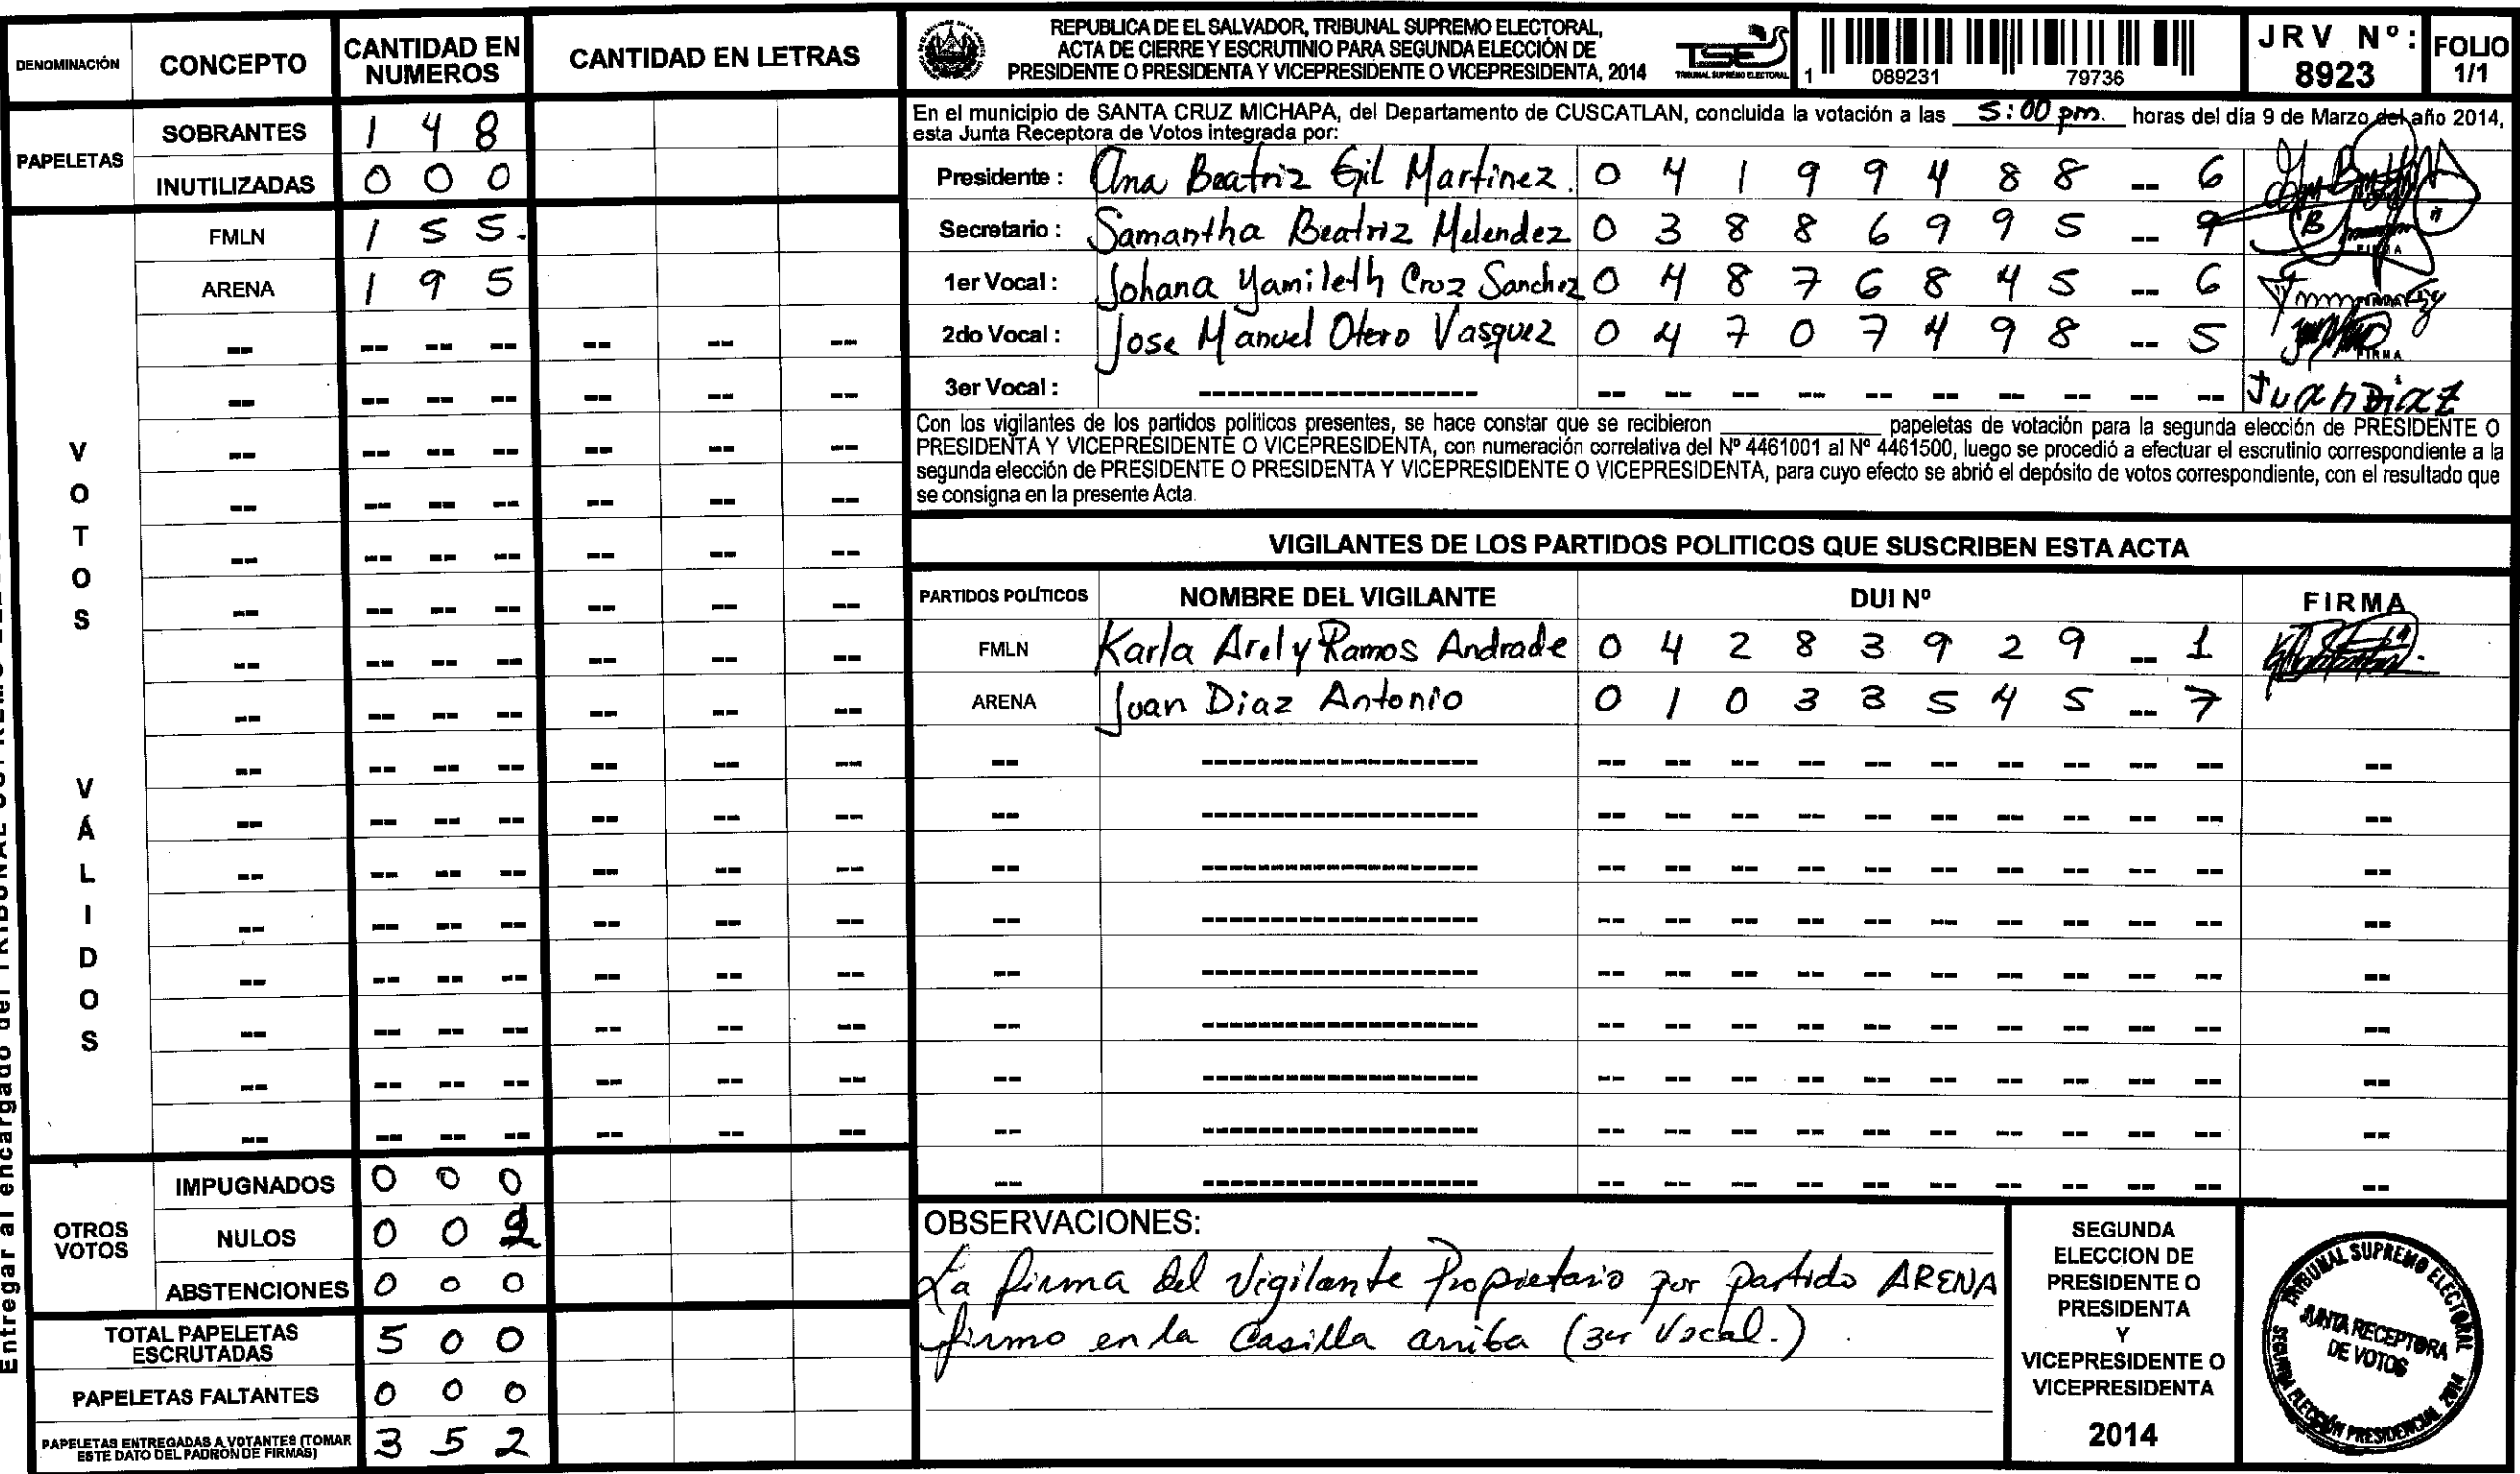 DENOMINACIÓN CONCEPTO CANTIDAD EN NUMEROS CANTIDAD EN LETRAS
PAPELETAS
SOBRANTES 1 4 8
INUTILIZADAS 0 0 0
VOTOS VÁLIDOS
FMLN 1 5 5.
ARENA 1 9 5
OTROS VOTOS
IMPUGNADOS 0 0 0
NULOS 0 0 2
ABSTENCIONES 0 0 0
TOTAL PAPELETAS ESCRUTADAS 5 0 0
PAPELETAS FALTANTES 0 0 0
PAPELETAS ENTREGADAS A VOTANTES (TOMAR ESTE DATO DEL PADRÓN DE FIRMAS) 3 5 2
Entregar al encargado del TRIBUNAL
REPUBLICA DE EL SALVADOR, TRIBUNAL SUPREMO ELECTORAL,
ACTA DE CIERRE Y ESCRUTINIO PARA SEGUNDA ELECCIÓN DE
PRESIDENTE O PRESIDENTA Y VICEPRESIDENTE O VICEPRESIDENTA, 2014
TSE
TRIBUNAL SUPREMO ELECTORAL
1 089231 79736
JRV Nº: 8923
FOLIO 1/1
En el municipio de SANTA CRUZ MICHAPA, del Departamento de CUSCATLAN, concluida la votación a las 5:00 pm. horas del día 9 de Marzo del año 2014,
esta Junta Receptora de Votos integrada por:
Presidente : Ana Beatriz Gil Martinez. 0 4 1 9 9 4 8 8 -- 6
Secretario : Samantha Beatriz Melendez 0 3 8 8 6 9 9 5 -- 9
1er Vocal : Johana Yamileth Cruz Sanchez 0 4 8 7 6 8 4 5 -- 6
2do Vocal : Jose Manuel Otero Vasquez 0 4 7 0 7 4 9 8 -- 5
3er Vocal : Juan Diaz
Con los vigilantes de los partidos politicos presentes, se hace constar que se recibieron ____________ papeletas de votación para la segunda elección de PRESIDENTE O
PRESIDENTA Y VICEPRESIDENTE O VICEPRESIDENTA, con numeración correlativa del Nº 4461001 al Nº 4461500, luego se procedió a efectuar el escrutinio correspondiente a la
segunda elección de PRESIDENTE O PRESIDENTA Y VICEPRESIDENTE O VICEPRESIDENTA, para cuyo efecto se abrió el depósito de votos correspondiente, con el resultado que
se consigna en la presente Acta.
VIGILANTES DE LOS PARTIDOS POLITICOS QUE SUSCRIBEN ESTA ACTA
PARTIDOS POLÍTICOS NOMBRE DEL VIGILANTE DUI Nº FIRMA
FMLN Karla Arely Ramos Andrade 0 4 2 8 3 9 2 9 -- 1
ARENA Juan Diaz Antonio 0 1 0 3 3 5 4 5 -- 7
OBSERVACIONES:
La firma del Vigilante Propietario por partido ARENA
firmo en la Casilla arriba (3er Vocal.)
SEGUNDA
ELECCION DE
PRESIDENTE O
PRESIDENTA
Y
VICEPRESIDENTE O
VICEPRESIDENTA
2014
TRIBUNAL SUPREMO ELECTORAL
JUNTA RECEPTORA
DE VOTOS
SEGUNDA ELECCIÓN PRESIDENCIAL 2014